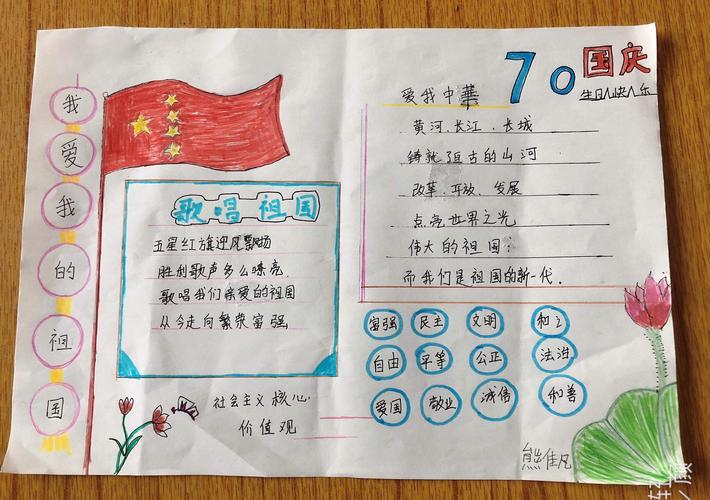 我爱我的祖国
歌唱祖国
五星红旗迎风飘扬
胜利歌声多么嘹亮.
歌唱我们亲爱的祖国
从今走向繁荣富强
社会主义核心
价值观
70 国庆
生日快乐
爱我中華
黄河、长江、长城
铸就了亘古的山河
改革、开放、发展
点亮世界之光
伟大的祖国:
而我们是祖国的新一代.
富强 民主 文明
自由 平等 公正 法治
爱国 敬业 诚信 和善
熊佳凡